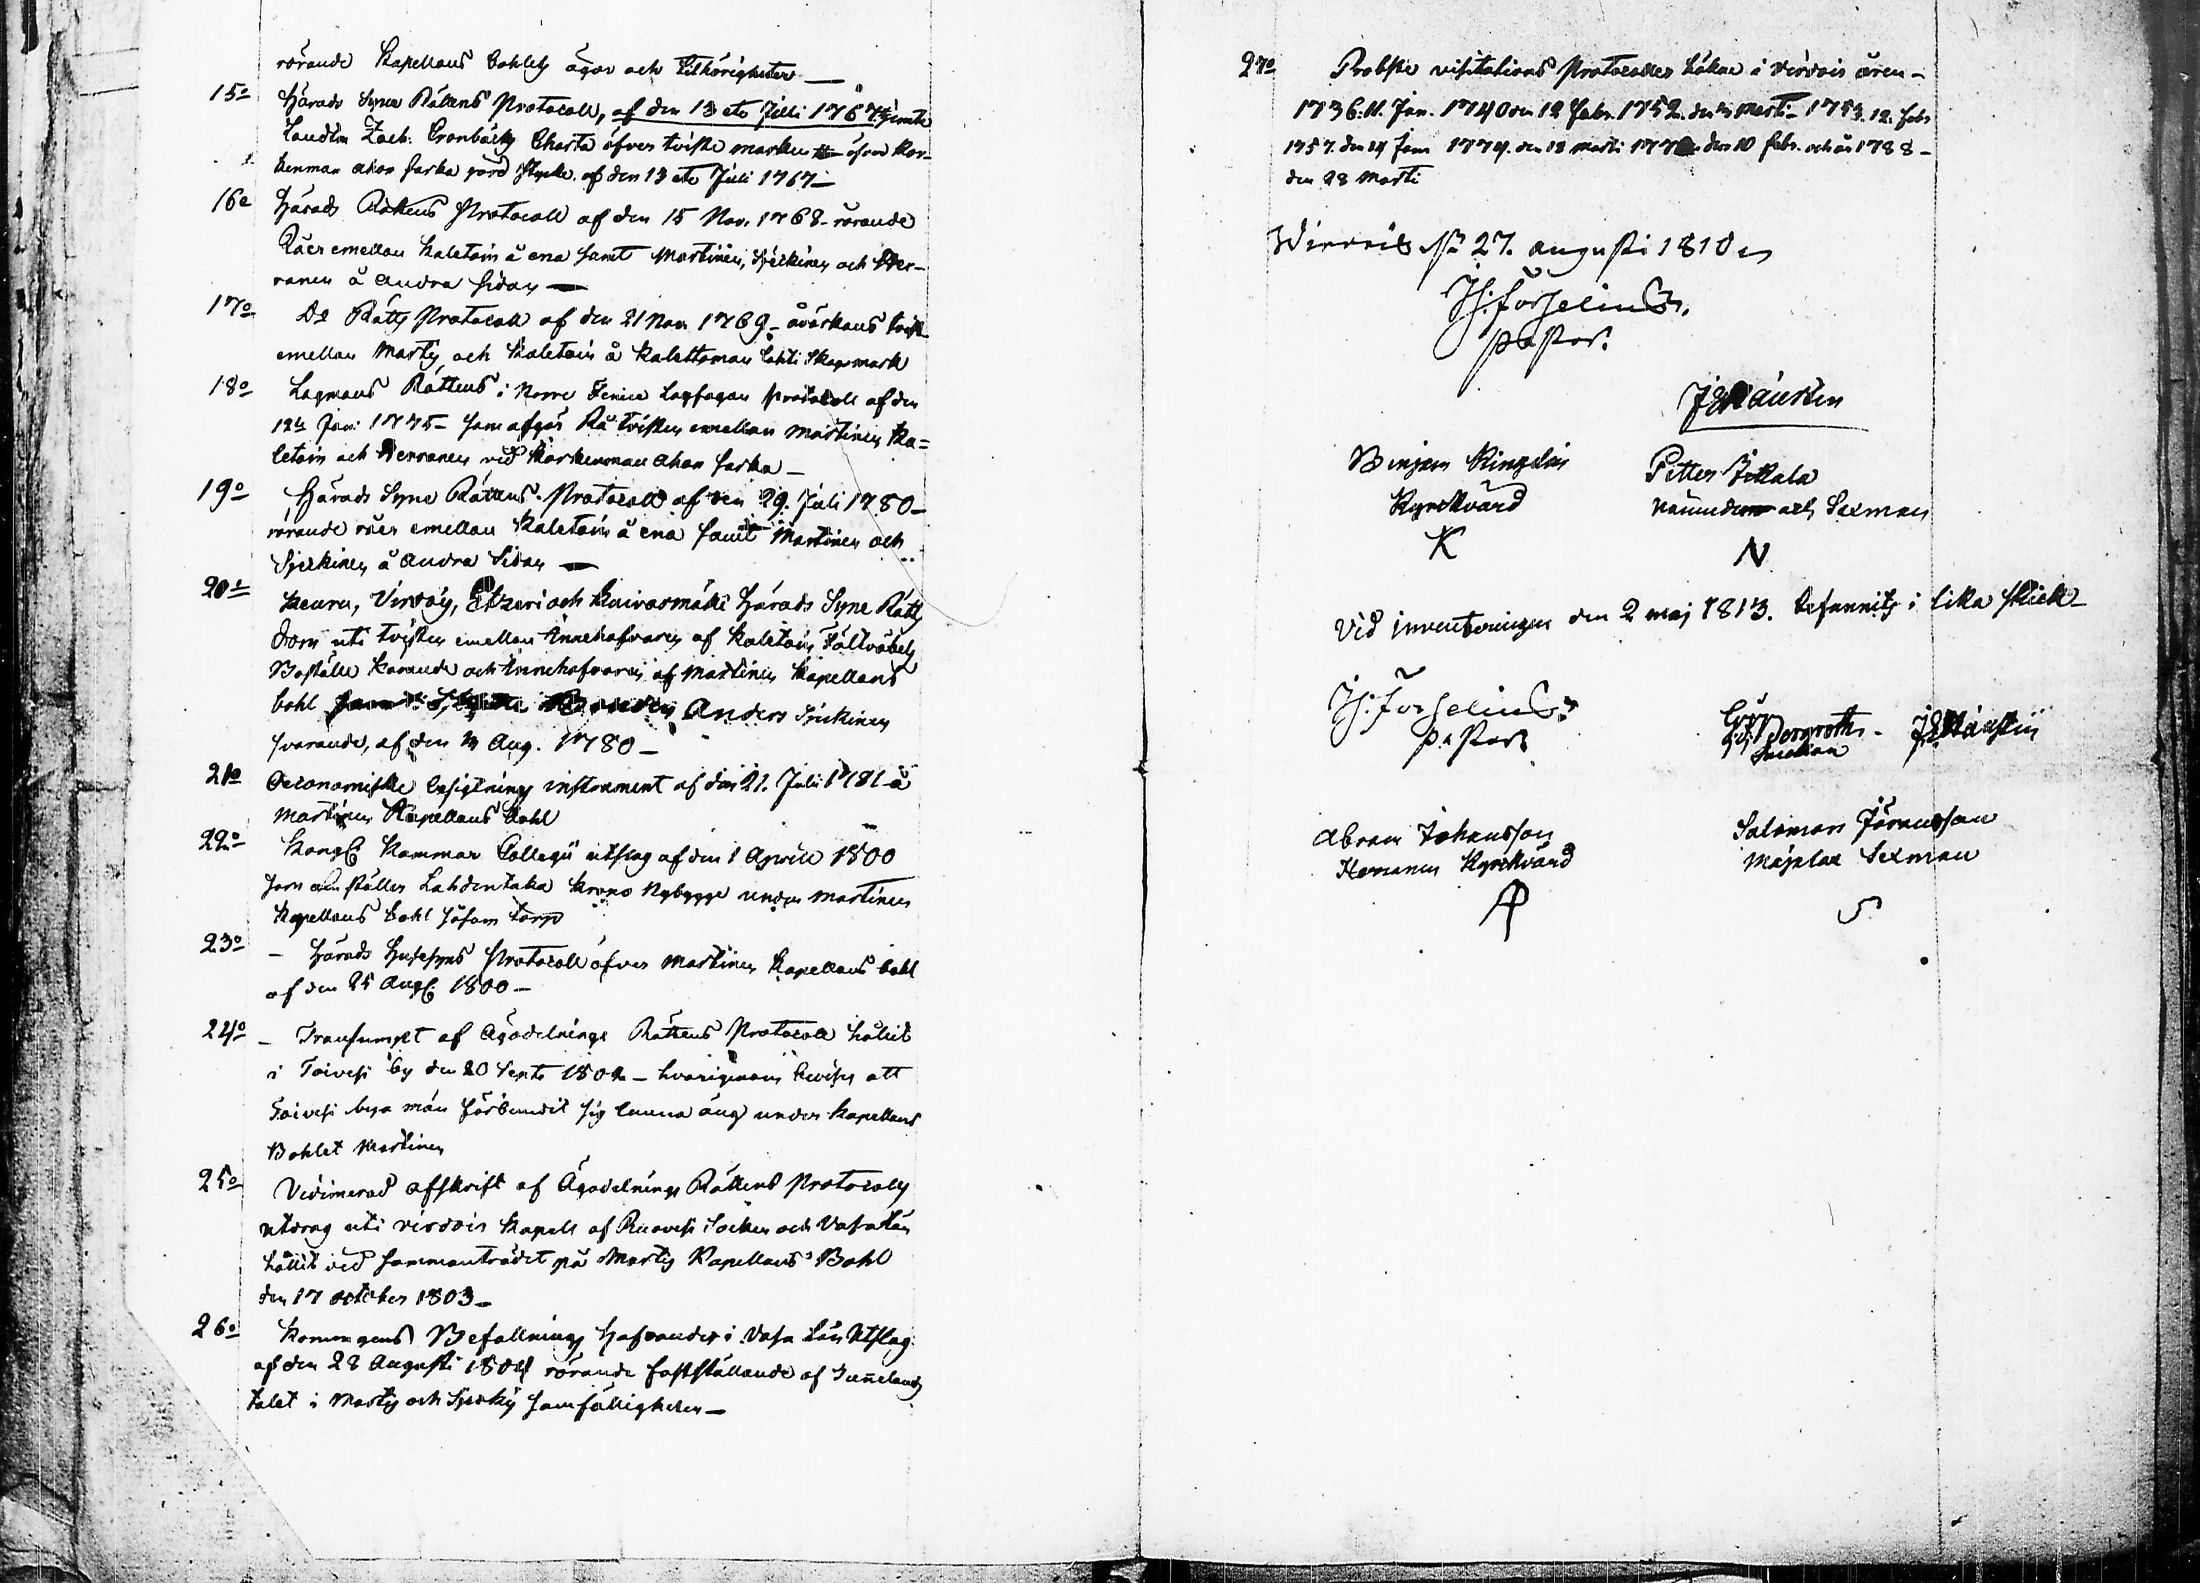 rörande Kapellans Bohlets ägor och Tillhörigheter —
15o Härads Syne Rättens Protocoll, af den 13 etc Julii 1767 jemte
Landtm Zach. Cronbäcks Charta öfver tviste marken öfver Kor-
kenman ahon sarka af den 13 etc Julii 1767 —
16o Härads Rättens Protocoll af den 15 Nov. 1768 - rörande
Råer emellan Kaletoin å ena samt Martinen, Spirkinen och Her-
ranen å andra sidan —
17o Do Rätts Protocoll af den 21 Nov 1769 - åvärkans tvist
emellan Martis och Kaletoin å Kalettoman lahti Skogsmark
18o Lagmans Rättens i Norre Finnes Lagsagas Protocoll af den
12te Jan: 1775 - som afgör Rå tvisten emellan Martinen Ka=
letoin och Herranen vid Korkenman ahon sarka —
19o Härads Syne Rättens Protocoll af den 29. Julii 1780 —
rörande råer emellan Kaletoin å ena samt Martinen och
Spirkinen å andra Sidan —
20o Keuru, Virdois, Etzeri och Kuivasmäki Härads Syne Rätts
Dom uti tvisten emellan Innehafvaren af Kaletoin Fältväbels
Boställe Kärande och Innehafvaren af Martinen Kapellans
bohl Anders Spirkinen
svarande, af den 3 Aug. 1780 —
21o Oeconomiske besigtnings instrument af den 21. Julii 1781 å
Martinen Kapellans bohl
22o Kongl Kammar Collegii utslag af den 1 Aprill 1800
som anställer Lahdentaka Krono Nybygge under Martinen
Kapellans bohl såsom torp
23o — Härads Husesyns Protocoll öfver Martinen Kapellans bohl
af den 25 Augs 1800 —
24o — Transumpt af Ägodelnings Rättens Protocoll hållit
i Toivesi by den 20 Sept 1802 — hvarigenom bevises att
Toivesi bya män förbundit sig lemna äng under Kapellans
Bohlet Martinen
25o Vidimerad afskrift af Ägodelnings Rättens Protocolls
utdrag uti Virdois Kapell af Ruovesi Socken och Vasa län
hållit vid sammanträdet på Martis Kapellans Bohl
den 17 October 1803 —
26o Konungens Befallnings Hafvandes i Vasa Län Utslag
af den 28 Augusti 1804 rörande fastställande af Tunnelands
talet i Martis och Spirkis samfälligheter —
27o Probste visitations Protocoller hållne i Virdois åren —
1736. 11. Jan. 1740 den 12 Febr. 1752. den 3 Marti - 1753. 12. Febr
1757. den 24 Jan 1774. den 18 Marti 177 den 10 Febr. och år 1788 —
den 28 Marti
Wirdois den 27. augusti 1810
Js: Forselius.
pastor.
Benjam Ringelin
Kyrckvärd
K
Petter Jekala
Nämndem och Sexman
N
Vid inventeringen den 2 maj 1813. befannits i lika skick —
Js: Forselius
pastor
Abram Johansson
Herranen Kyrckvärd
Salomon Göransson
Mäjalax Sexman
S